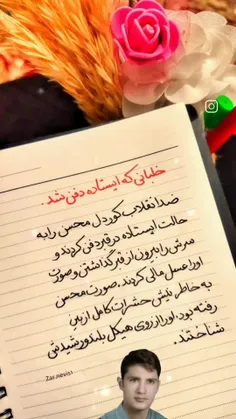 خلبانی که ایستاده دفن شد.
ضدانقلاب کوردل محسن را به
حالت ایستاده در قبر دفن کردند و
سرش را بیرون از قبر گذاشتن و صورت
او را عسل مالی کردند. صورت محسن
به خاطر نیش حشرات کامل از بین
رفته بود. او را از روی هیکل بلند و رشیدش
شناختند.